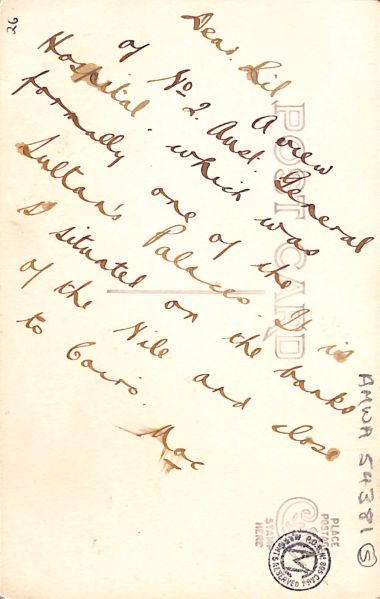 26
Dear Lil
A view
of No 2. Aust. General
Hospital. which was
formally one of the
Sultan's Palaces. It is
situated on the banks
of the Nile and close
to Cairo.
Mac
X
POST CARD
AMWA 54381 (S)
PLACE
POSTAGE
STAMP
HERE